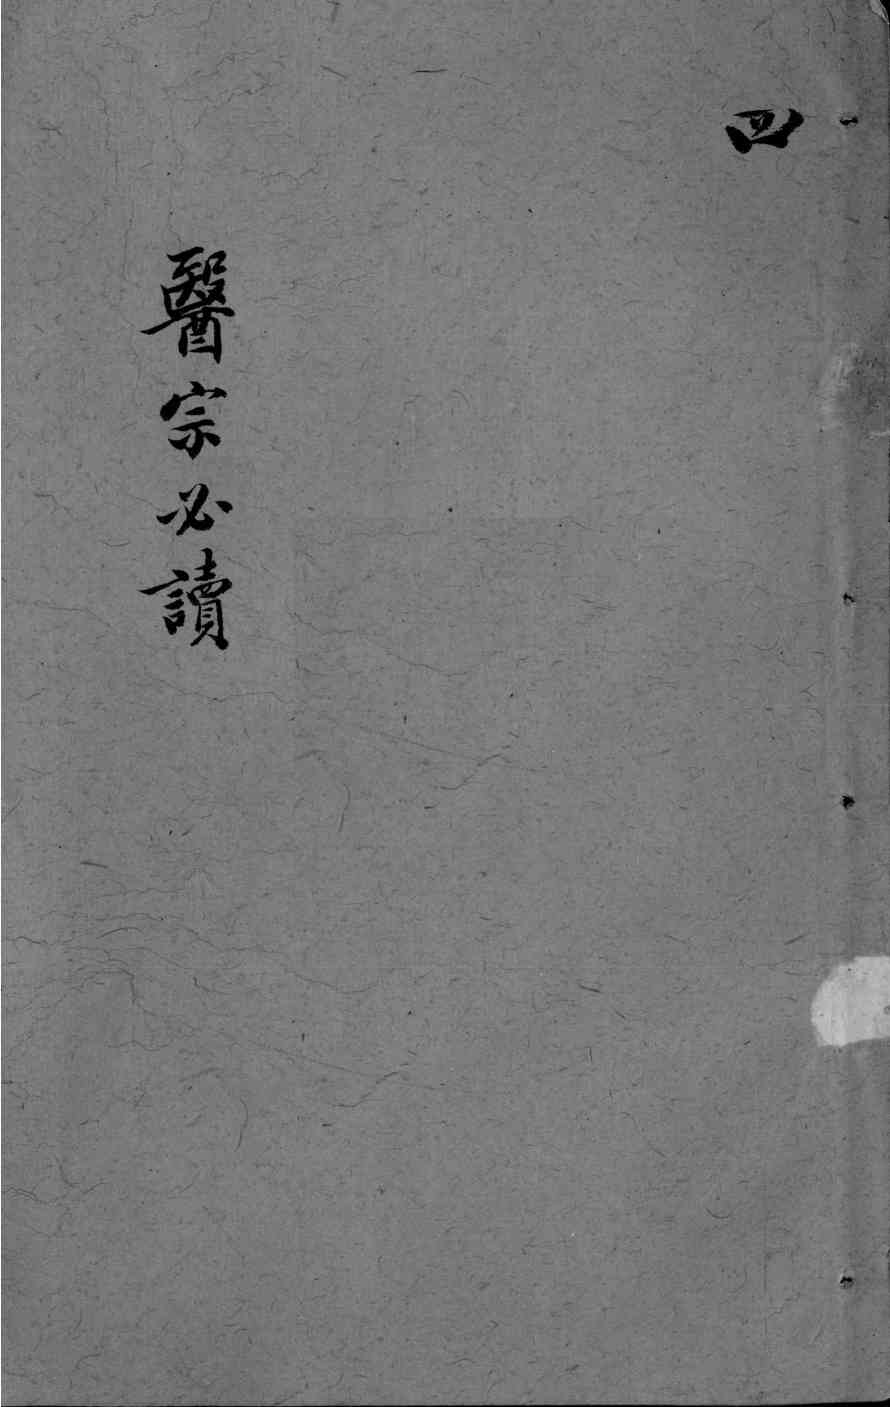 四
醫宗必讀